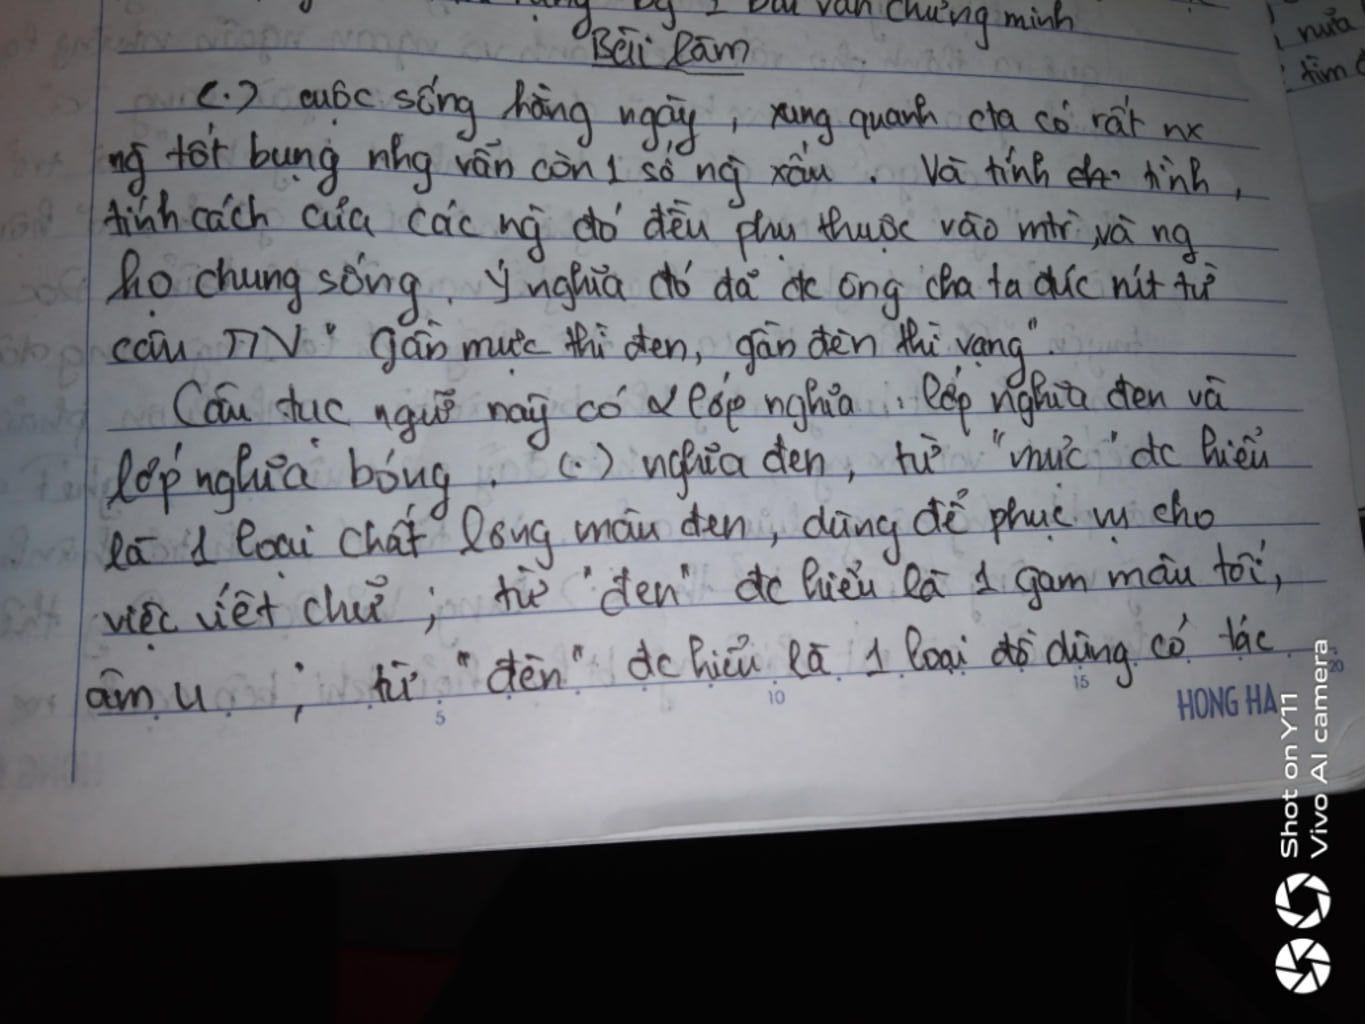 1 bài văn chứng minh
nữa
tìm
Bài làm
(.) cuộc sống hằng ngày, xung quanh cta có rất nx
ng tốt bụng nhg vẫn còn 1 số ng xấu. Và tính tình,
tính cách của các ng đó đều phụ thuộc vào mtr và ng
họ chung sống. Ý nghĩa đó đã đc ông cha ta đúc rút từ
câu TNV " Gần mực thì đen, gần đèn thì rạng".
Câu tục ngữ này có 2 lớp nghĩa : lớp nghĩa đen và
lớp nghĩa bóng. (.) nghĩa đen, từ "mực" đc hiểu
là 1 loại chất lỏng màu đen, dùng để phục vụ cho
việc viết chữ ; từ "đen" đc hiểu là 1 gam màu tối,
âm u ; từ "đèn" đc hiểu là 1 loại đồ dùng có tác
5 10 15 20
HONG HA
Shot on Y11
Vivo AI camera